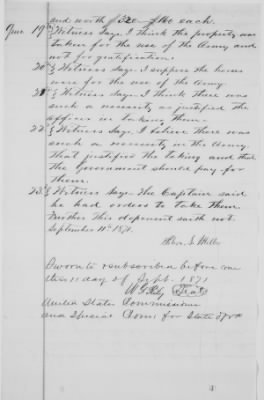 and worth $320 - $160 each.
Ques. 19th } Witness Says. I think the property was
taken for the use of the Army and
not for gratification.
20th } Witness Says. I suppose the horses
were for the use of the Army.
21st } Witness Says. I think there was
such a necessity as justified the
officer in taking them.
22 } Witness Says. I believe there was
such a necessity in the Army,
that justified the taking and that
the Government should pay for
them.
23 } Witness Says. The Captain said
he had orders to take them.
Further this deponent saith not.
September 11th 1871.
Sworn to & subscribed before me
this 11 day of Sept. 1871
United States Commissioner
and Special Com. for State of Va